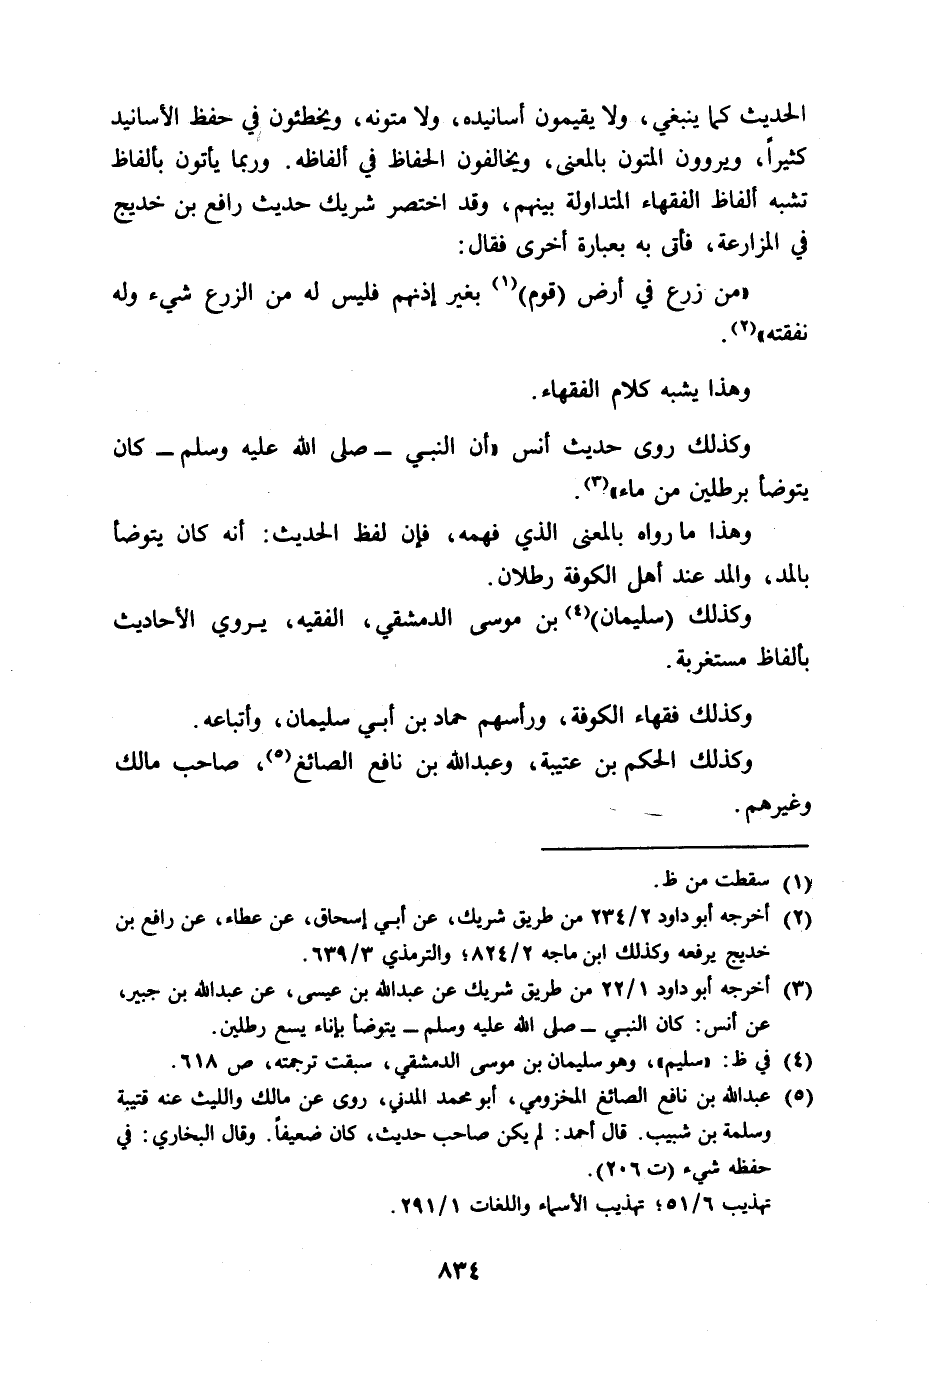 الحديث كما ينبغي، ولا يقيمون أسانيده، ولا متونه، ويخطئون في حفظ الأسانيد
كثيراً، ويروون المتون بالمعنى، ويخالفون الحفاظ في ألفاظه. وربما يأتون بألفاظ
تشبه ألفاظ الفقهاء المتداولة بينهم، وقد اختصر شريك حديث رافع بن خديج
في المزارعة، فأتى به بعبارة أخرى فقال:
«من زرع في أرض (قوم)(١) بغير إذنهم فليس له من الزرع شيء وله
نفقته»(٢).
وهذا يشبه كلام الفقهاء.
وكذلك روى حديث أنس «أن النبي ـ صلى الله عليه وسلم ـ كان
يتوضأ برطلين من ماء»(٣).
وهذا ما رواه بالمعنى الذي فهمه، فإن لفظ الحديث: أنه كان يتوضأ
بالمد، والمد عند أهل الكوفة رطلان.
وكذلك (سليمان)(٤) بن موسى الدمشقي، الفقيه، يروي الأحاديث
بألفاظ مستغربة.
وكذلك فقهاء الكوفة، ورأسهم حماد بن أبي سليمان، وأتباعه.
وكذلك الحكم بن عتيبة، وعبدالله بن نافع الصائغ(٥)، صاحب مالك
وغيرهم.
(١) سقطت من ظ.
(٢) أخرجه أبو داود ٢/٢٣٤ من طريق شريك، عن أبي إسحاق، عن عطاء، عن رافع بن
خديج يرفعه وكذلك ابن ماجه ٢/٨٢٤؛ والترمذي ٣/٦٣٩.
(٣) أخرجه أبو داود ١/٢٢ من طريق شريك عن عبدالله بن عيسى، عن عبدالله بن جبير،
عن أنس: كان النبي ـ صلى الله عليه وسلم ـ يتوضأ بإناء يسع رطلين.
(٤) في ظ: «سليم»، وهو سليمان بن موسى الدمشقي، سبقت ترجمته، ص ٦١٨.
(٥) عبدالله بن نافع الصائغ المخزومي، أبو محمد المدني، روى عن مالك والليث عنه قتيبة
وسلمة بن شبيب. قال أحمد: لم يكن صاحب حديث، كان ضعيفاً. وقال البخاري: في
حفظه شيء (ت ٢٠٦).
تهذيب ٦/٥١؛ تهذيب الأسماء واللغات ١/٢٩١.
٨٣٤